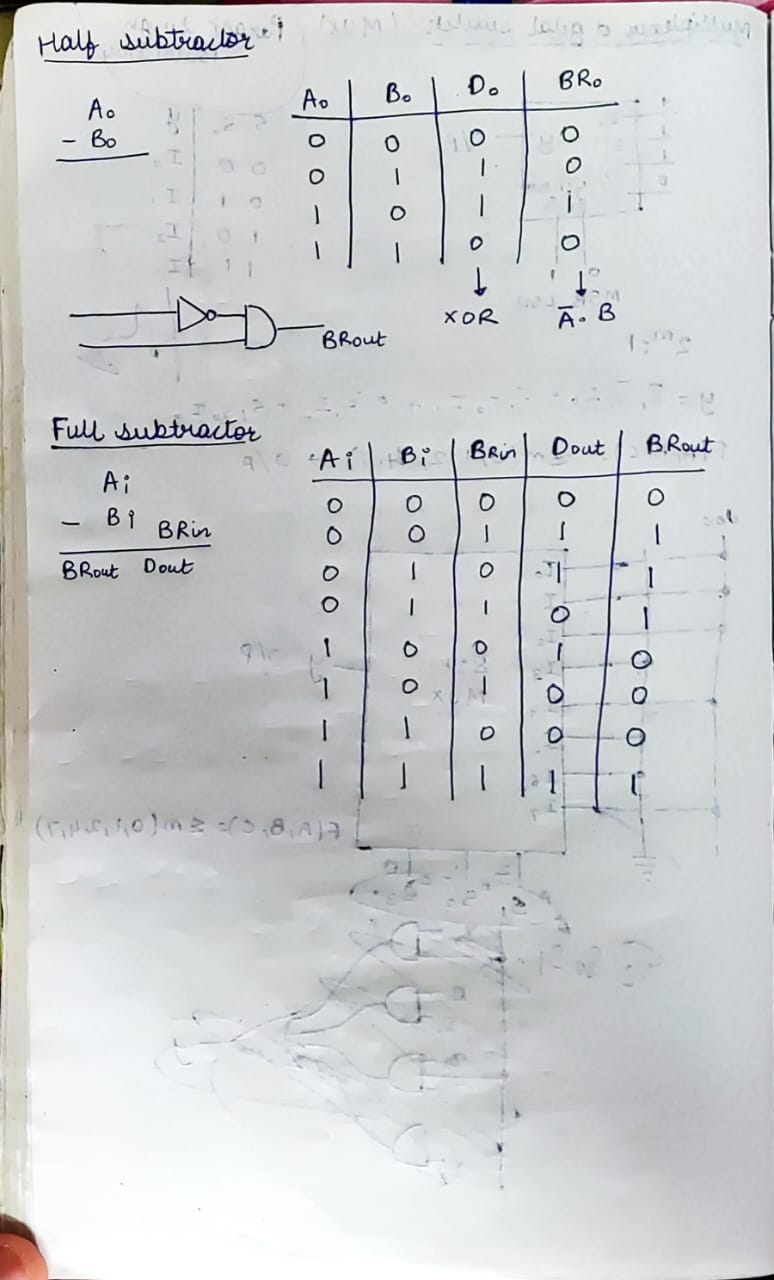 Half subtractor
A₀
- B₀
A₀ B₀ D₀ BR₀
0 0 0 0
0 1 1 0
1 0 1 1
1 1 0 0
XOR A̅. B
BRout
Full subtractor
Ai
- Bi BRin
BRout Dout
Ai Bi BRin Dout BRout
0 0 0 0 0
0 0 1 1 1
0 1 0 1 1
0 1 1 0 1
1 0 0 1 0
1 0 1 0 0
1 1 0 0 0
1 1 1 1 1